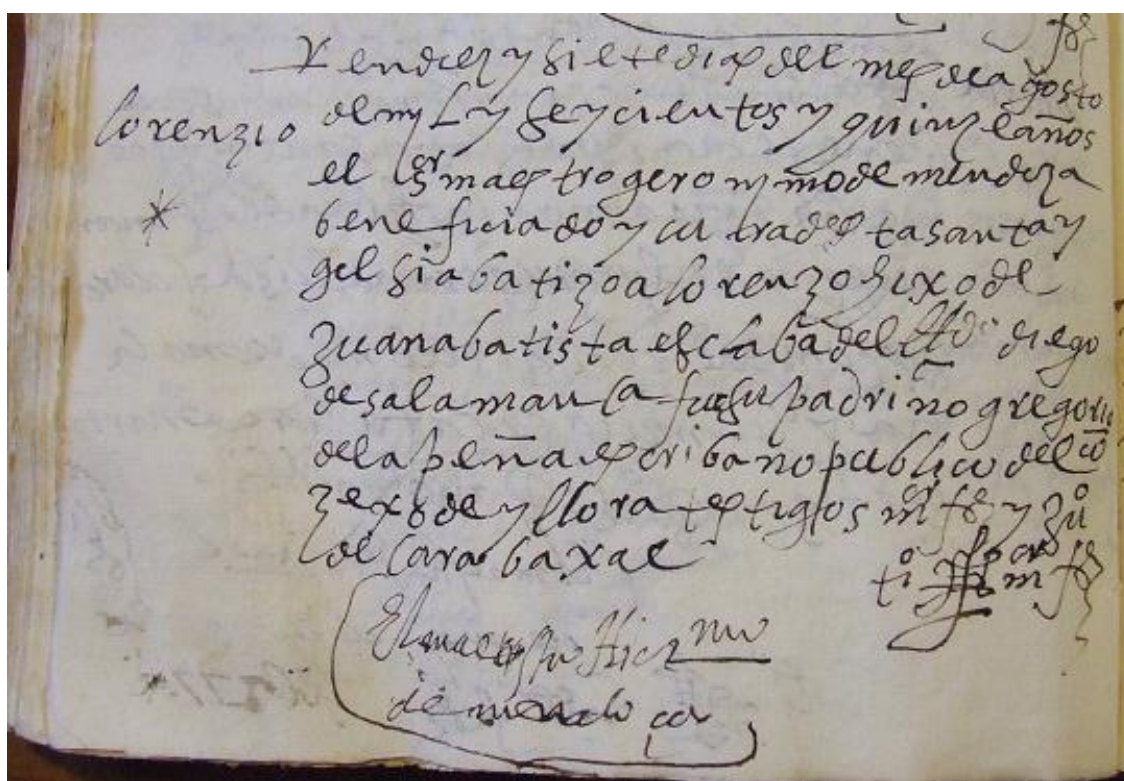 lorenzio
en diez y siete dias del mes de agosto
de myl y seycientos y quinze años
el sr maestro geronymo de mendoza
beneficiado y cura desta santa y
glesia batizo a lorenzo hixo de
zuana batista esclaba del ldo diego
de salamanca fue su padrino gregorio
de la peña escribano publico del co
zexo de yllora testigos mr fr y zuo
de carabaxal
El maestro Hiermo
de mendoça